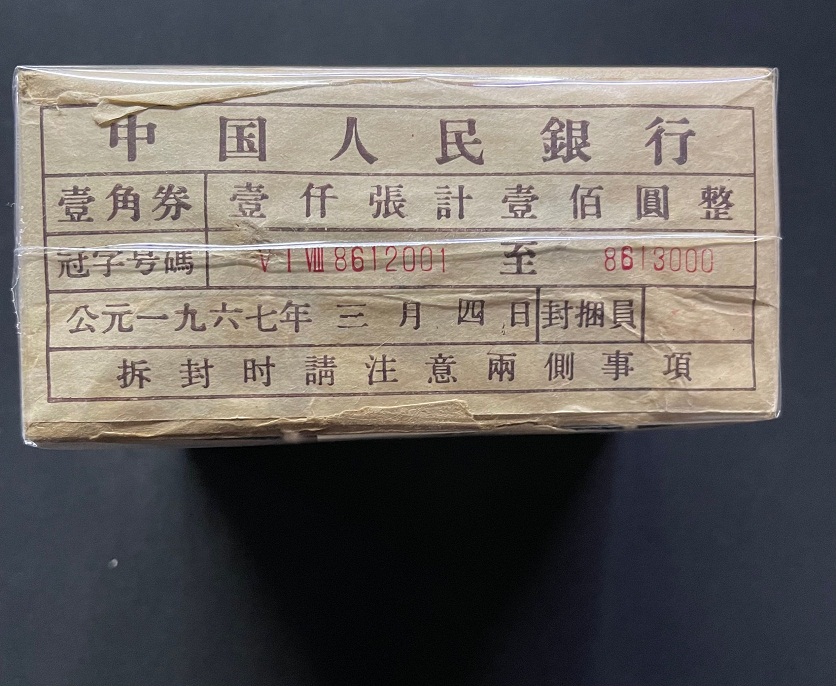 中国人民銀行
壹角券 壹仟張計壹佰圓整
冠字号碼 V I VIII 8612001 至 8613000
公元一九六七年三月四日 封捆員
拆封时請注意兩側事項